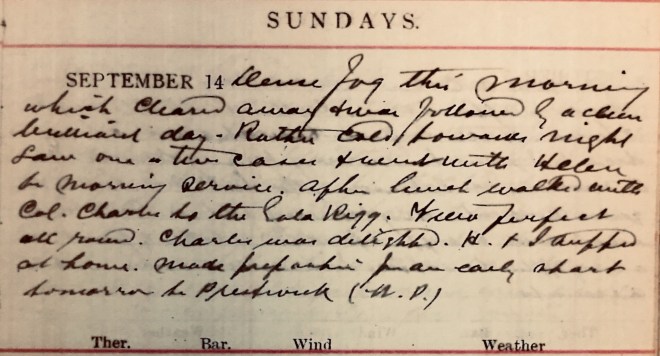 SUNDAYS.
SEPTEMBER 14 Dense fog this morning
which cleared away & was followed by a clear
brilliant day - Rather cold towards night
Saw one or two cases & went with Helen
to morning service. After lunch walked with
Col. Charles to the Rigg. View perfect
all round. Charles was delighted. H. & I supped
at home. Made preparation for an early start
tomorrow to Prestwick (N.P.)
Ther. Bar. Wind Weather